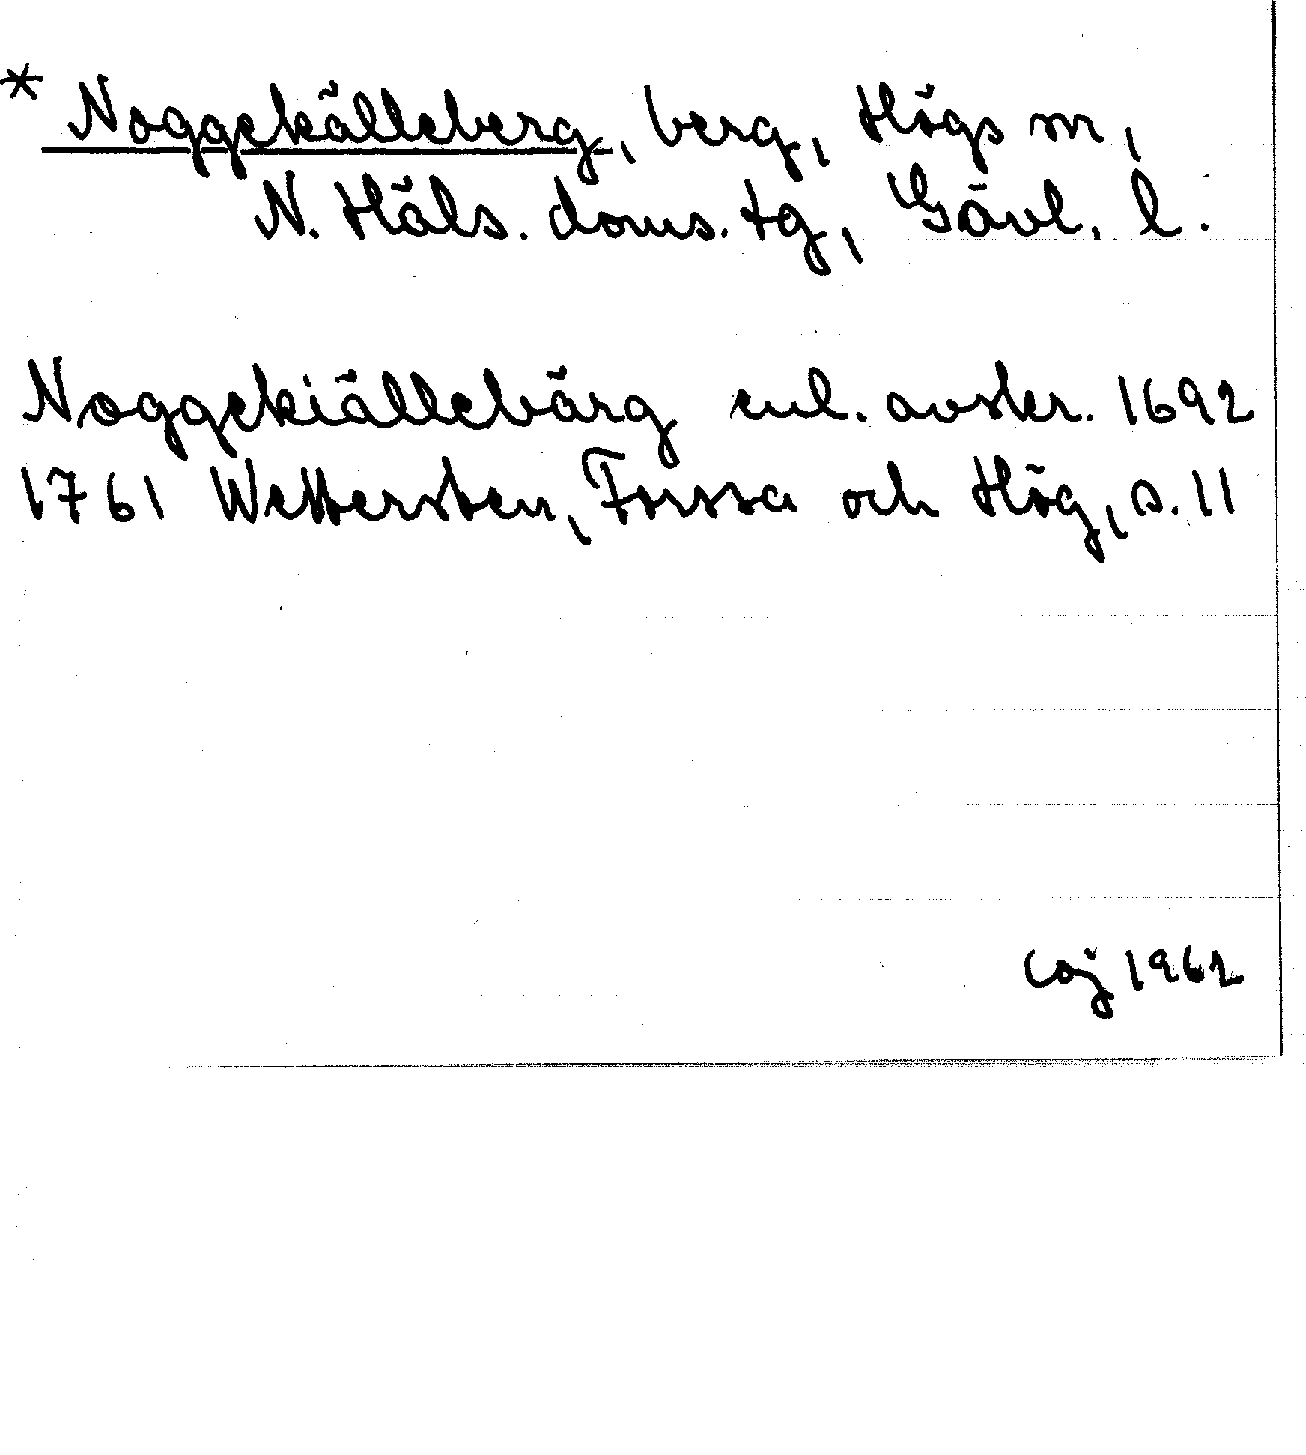 * Noggekälleberg, berg, Högs sn,
N. Häls. doms. tg, Gävl. l.
Noggekiällebärg enl. avskr. 1692
1761 Wettersten, Forssa och Hög, s. 11
Coj 1962